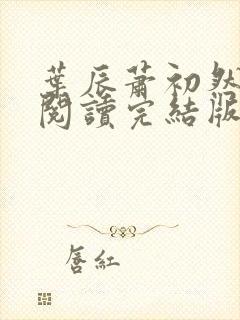 葉辰蕭初然
閱讀完結版
唇紅